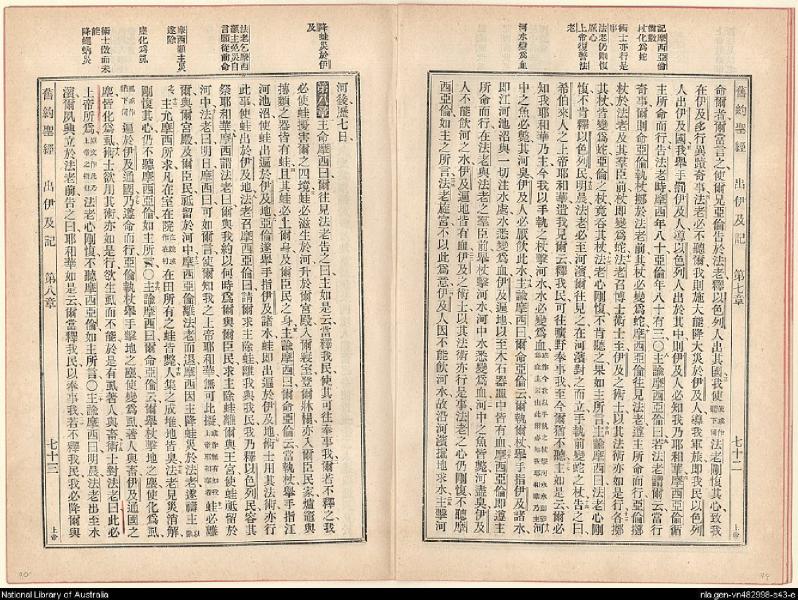 舊約聖經 出伊及記 第七章 七十二
上帝
記摩西亞倫
杖化為蛇
術士亦行是
法老仍剛愎
厥心
上帝復警法
老
河水變為血
命爾者爾當言之使爾兄亞倫告於法老釋以色列人出其國我使法老剛愎其心致我
在伊及多行異蹟奇事法老必不聽爾我則施大能降大災於伊及人導我軍旅即我民以色列
人出伊及國我舉手罰伊及人導以色列人出於其中則伊及人必知我乃耶和華摩西亞倫循
主所命而行告法老時摩西年八十亞倫年八十有三〇主諭摩西亞倫曰若法老謂爾云當行
奇事爾則命亞倫云執爾杖擲於法老前其杖必變為蛇摩西亞倫往見法老遵主所命而行擲
杖於法老及其羣臣前杖即變為蛇法老召博士術士至伊及之術士以其法術亦如是行各擲
其杖皆變為蛇亞倫之杖吞其杖法老心剛愎不肯聽之果如主所言主諭摩西曰法老心剛
愎不肯釋以色列民明晨法老必至河濱爾往見之在河濱對之而立手執前變蛇之杖告之曰
希伯來人之上帝耶和華遣我見爾云釋我民可往曠野奉事我至今爾猶不聽主如是云爾必
知我耶和華乃主今我以手執之杖擊河水水必變為血
中之魚必斃其河臭伊及人必厭飲此水主諭摩西曰爾命亞倫云爾執爾杖舉手指伊及諸水
即江河池沼與一切注水處水悉變為血伊及遍地以至木石器皿中皆有血摩西亞倫即遵主
所命而行在法老與法老之羣臣前舉杖擊河水河中水悉變為血河中之魚皆斃河盡臭伊及
人不能飲河之水伊及遍地皆有血伊及之術士以其法術亦行是事法老之心仍剛愎不聽摩
西亞倫如主之所言法老庭宮不以此為意伊及人因不能飲河水故沿河濱掘地求水主擊河
降蛙災於伊
及
法老乞摩西
籲主免災自
言願從前命
摩西籲主災
遂除
塵化為虱
術士傚而未
能
降蠅蝸災
河後歷七日
第八章主命摩西曰爾往見法老告之曰主如是云當釋我民使其可往奉事我爾若不釋之我
必使蛙擾害爾之四境蛙必滋生於河升於爾宮殿入爾寢室登爾牀榻亦入爾臣民家爐竈與
摶麵之器皆有蛙且其蛙必上爾身及爾臣民之身主諭摩西曰爾命亞倫云當執杖舉手指江
河池沼使蛙出遍於伊及地亞倫遂舉手指伊及諸水蛙即出遍於伊及地術士用其法術亦行
此事使蛙出於伊及地法老召摩西亞倫曰請爾求主除蛙離我與我民我乃釋以色列民容其
祭耶和華摩西謂法老曰爾與我約以何時為爾與爾臣民求主除蛙離爾與王宮使蛙祇留於
河中法老曰明日摩西曰可如爾言使爾知我之上帝耶和華無可比擬蛙必離
爾與爾宮殿及爾臣民祇留於河中摩西亞倫離法老而退摩西因主降蛙災於法老遂禱主
主允摩西所求凡在室在院在田所有之蛙皆斃人集之成堆地皆臭法老見災消解
剛愎其心仍不聽摩西亞倫如主所言〇主諭摩西曰爾命亞倫云爾舉杖擊地之塵使化為虱
遍於伊及通國乃遵命而行亞倫執杖舉手擊地之塵使變為虱著人與畜伊及通國之
塵皆化為虱術士欲用其術亦如是行欲生虱而不能於是有虱著人與畜術士對法老曰此必
上帝所為法老心剛愎不聽摩西亞倫如主所言〇主諭摩西曰明晨法老出至水
濱爾夙興立於法老前告之曰耶和華如是云爾當釋我民以奉事我若不釋我民我必降蠅與
舊約聖經 出伊及記 第八章 七十三
上帝
National Library of Australia
nla.gen-vn482998-s43-e